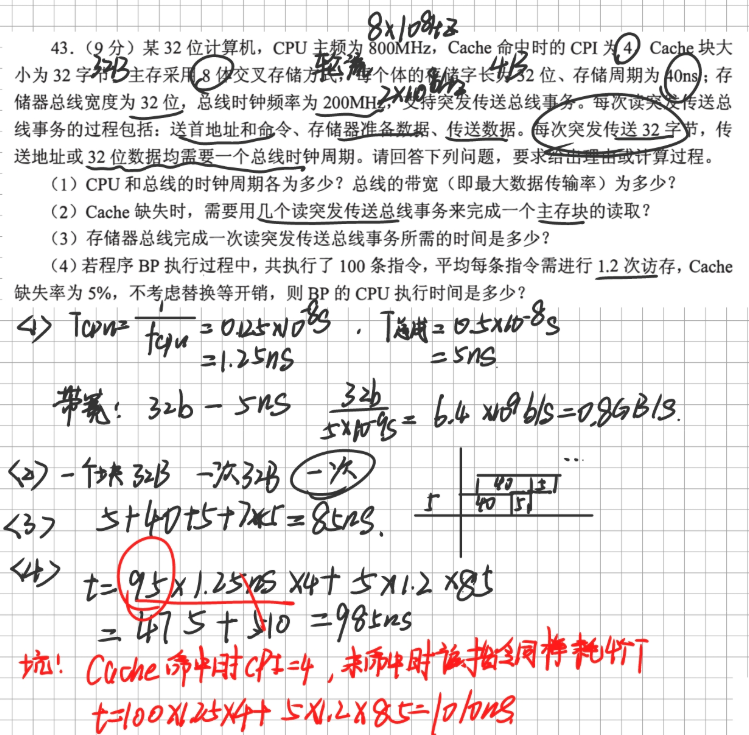 8×10⁸Hz
43.（9 分）某 32 位计算机，CPU 主频为 800MHz，Cache 命中时的 CPI 为 4，Cache 块大
32B 4B
小为 32 字节；主存采用 8 体交叉存储方式，每个体的存储字长为 32 位、存储周期为 40ns；存
2×10⁸Hz
储器总线宽度为 32 位，总线时钟频率为 200MHz，支持突发传送总线事务。每次读突发传送总
线事务的过程包括：送首地址和命令、存储器准备数据、传送数据。每次突发传送 32 字节，传
送地址或 32 位数据均需要一个总线时钟周期。请回答下列问题，要求给出理由或计算过程。
（1）CPU 和总线的时钟周期各为多少？总线的带宽（即最大数据传输率）为多少？
（2）Cache 缺失时，需要用几个读突发传送总线事务来完成一个主存块的读取？
（3）存储器总线完成一次读突发传送总线事务所需的时间是多少？
（4）若程序 BP 执行过程中，共执行了 100 条指令，平均每条指令需进行 1.2 次访存，Cache
缺失率为 5%，不考虑替换等开销，则 BP 的 CPU 执行时间是多少？
<1> Tcpu= 1/fcpu = 0.125×10⁻⁸s . T总线 = 0.5×10⁻⁸s
=1.25ns =5ns
带宽: 32b - 5ns 32b/5×10⁻⁹s = 6.4 ×10⁹b/s=0.8GB/s.
<2> 一个块32B 一次32B 一次
...
40 5
5 40 5
<3> 5+40+5+7×5=85ns.
<4> t= 95×1.25ns ×4+ 5×1.2×85
= 475+510 =985ns
坑! Cache命中时CPI=4，未命中时该指令同样耗4个T
t=100×1.25×4+ 5×1.2×85=1010ns